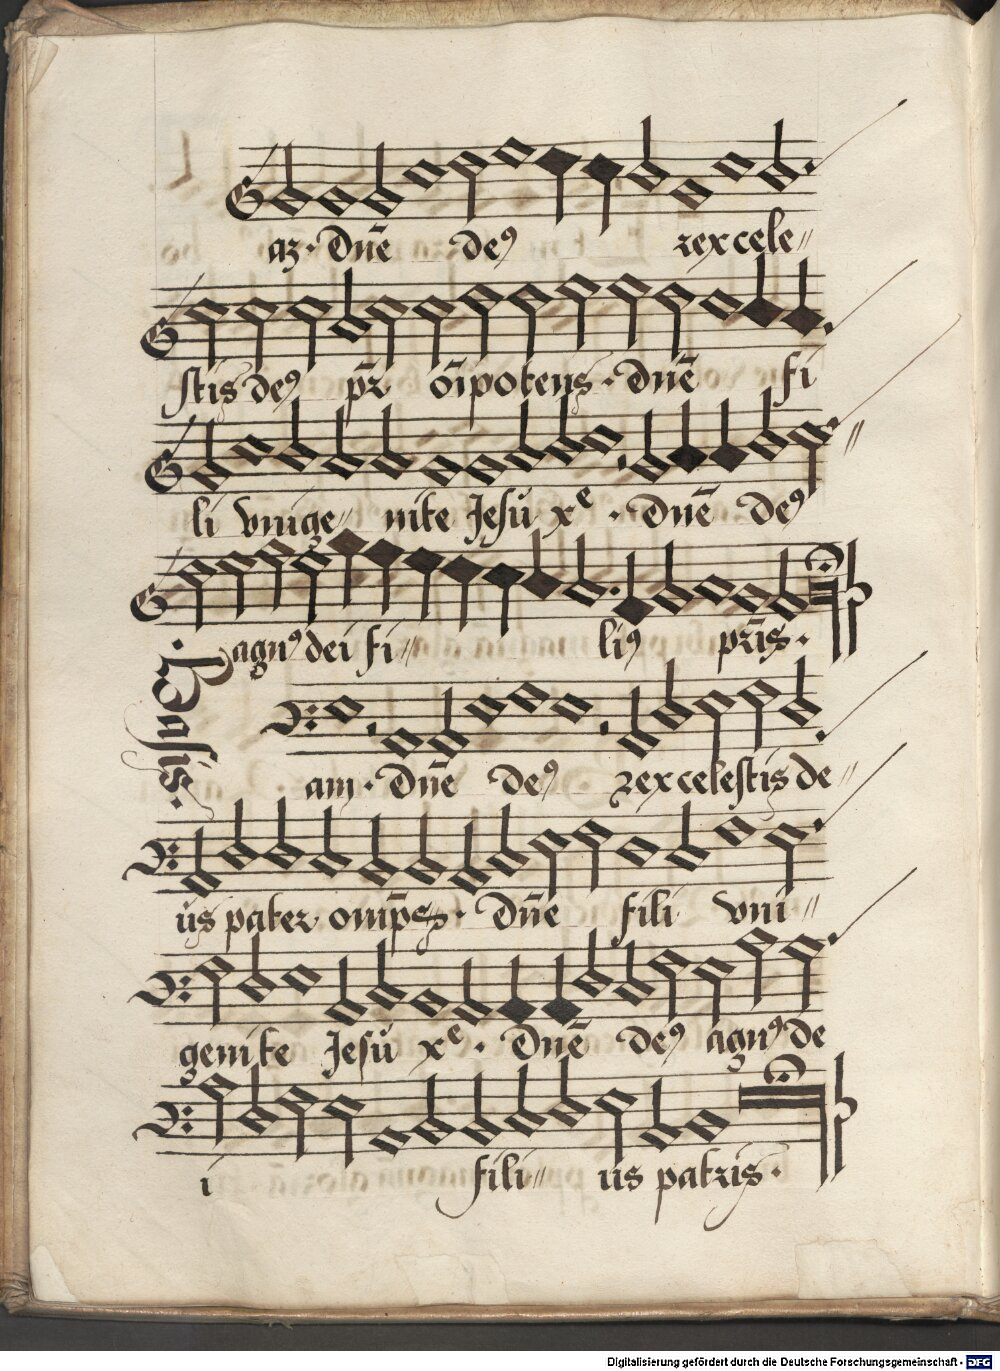 az · Dn̄e de⁹ rex cele〃
stis de⁹ pr̄ oīpotens · dn̄e fi
li vnige〃 nite Jesu xͤ · Dn̄e de⁹
agn⁹ dei fi〃 li⁹ pr̄is ·
Basis ·
am · Dn̄e de⁹ rex celestis de〃
us pater omp̄s · Dn̄e fili vni〃
genite Jesu xͤ · Dn̄e de⁹ agn⁹ de
i fili〃 us patris ·
Digitalisierung gefördert durch die Deutsche Forschungsgemeinschaft - DFG